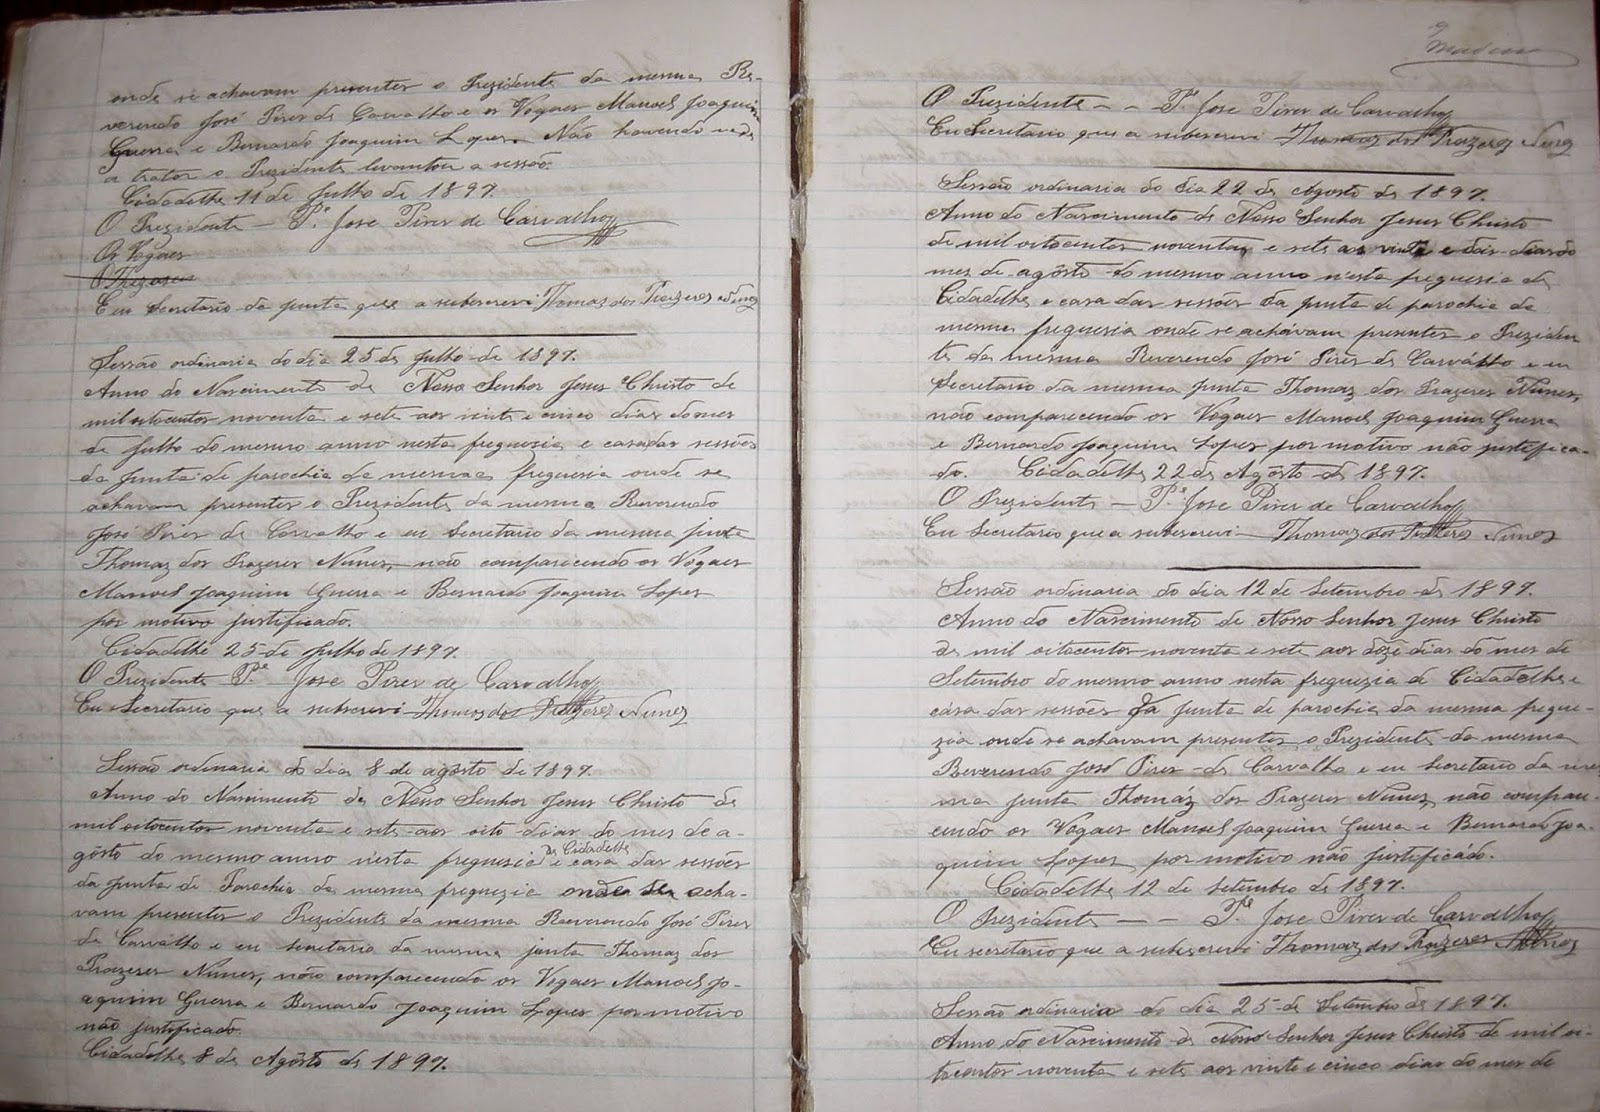 onde se achavam presentes o Prezidente da mesma Re-
verendo José Pires de Carvalho e os Vogaes Manoel Joaquim
Guerra e Bernardo Joaquim Lopes. Não havendo nada
a tratar o Prezidente levantou a sessão.
Cidadelhe 11 de Julho de 1897.
O Prezidente — P.e Jose Pires de Carvalho
Os Vogaes
O Thezoureiro
Eu Secretario da junta que a subscrevi Thomaz dos Prazeres Nunes
Sessão ordinaria do dia 25 de Julho de 1897.
Anno do Nascimento de Nosso Senhor Jesus Christo de
mil oitocentos noventa e sete aos vinte e cinco dias do mes
de Julho do mesmo anno nesta freguezia e casa das sessões
da Junta de parochia da mesma freguezia onde se
achavam presentes o Prezidente da mesma Reverendo
José Pires de Carvalho e eu Secretario da mesma junta
Thomaz dos Prazeres Nunes, não comparicendo os Vogaes
Manoel Joaquim Guerra e Bernardo Joaquim Lopes
por motivo justificado.
Cidadelhe 25 de Julho de 1897.
O Prezidente P.e Jose Pires de Carvalho
Eu Secretario que a subscrevi Thomaz dos Prazeres Nunes
Sessão ordinaria do dia 8 de agôsto de 1897.
Anno do Nascimento de Nosso Senhor Jesus Christo de
mil oitocentos noventa e sete aos oito dias do mes de a-
gôsto do mesmo anno nesta freguezia de Cidadelhe e casa das sessões
da Junta de Parochia da mesma freguezia onde se acha-
vam presentes o Prezidente da mesma Reverendo José Pires
de Carvalho e eu secretario da mesma junta Thomaz dos
Prazeres Nunes, não comparecendo os Vogaes Manoel Jo-
aquim Guerra e Bernardo Joaquim Lopes por motivo
não justificado.
Cidadelhe 8 de Agôsto de 1897.
9
O Prezidente — — P.e Jose Pires de Carvalho
Eu Secretario que a subscrevi Thomaz dos Prazeres Nunes
Sessão ordinaria do dia 22 de Agosto de 1897.
Anno do Nascimento de Nosso Senhor Jesus Christo
de mil oitocentos noventa e sete aos vinte e dois dias do
mes de agôsto do mesmo anno nesta freguesia de
Cidadelhe e casa das sessões da junta de parochia da
mesma freguesia onde se achávam presentes o Preziden
te da mesma Reverendo José Pires de Carválho e eu
Secretario da mesma Junta Thomaz dos Prazeres Nunes,
não comparecendo os Vogaes Manoel Joaquim Guerra
e Bernardo Joaquim Lopes por motivo não justifica-
do. Cidadelhe 22 de Agôsto de 1897.
O Prezidente — P.e Jose Pires de Carvalho
Eu Secretario que a subscrevi — Thomaz dos Prazeres Nunes
Sessão ordinaria do dia 12 de Setembro de 1897.
Anno do Nascimento de Nosso Senhor Jesus Christo
de mil oitocentos noventa e sete aos doze dias do mes de
Setembro do mesmo anno nesta freguezia de Cidadelhe e
cása das sessões da junta de parochia da mesma fregue-
zia onde se achavam presentes o Prezidente da mesma
Reverendo José Pires de Carvalho e eu secretario da mes
ma junta Thomáz dos Prazeres Nunes, não compare-
cendo os Vogaes Manoel Joaquim Guerra e Bernardo Joa-
quim Lopes por motivo não justificádo.
Cidadelhe 12 de setembro de 1897.
O Prezidente — — P.e Jose Pires de Carvalho
Eu secretario que a subscrevi Thomaz dos Prazeres Nunes
Sessão ordinaria do dia 25 de Setembro de 1897.
Anno do Nascimento de Nosso Senhor Jesus Christo de mil oi-
tocentos noventa e sete aos vinte e cinco dias do mes de